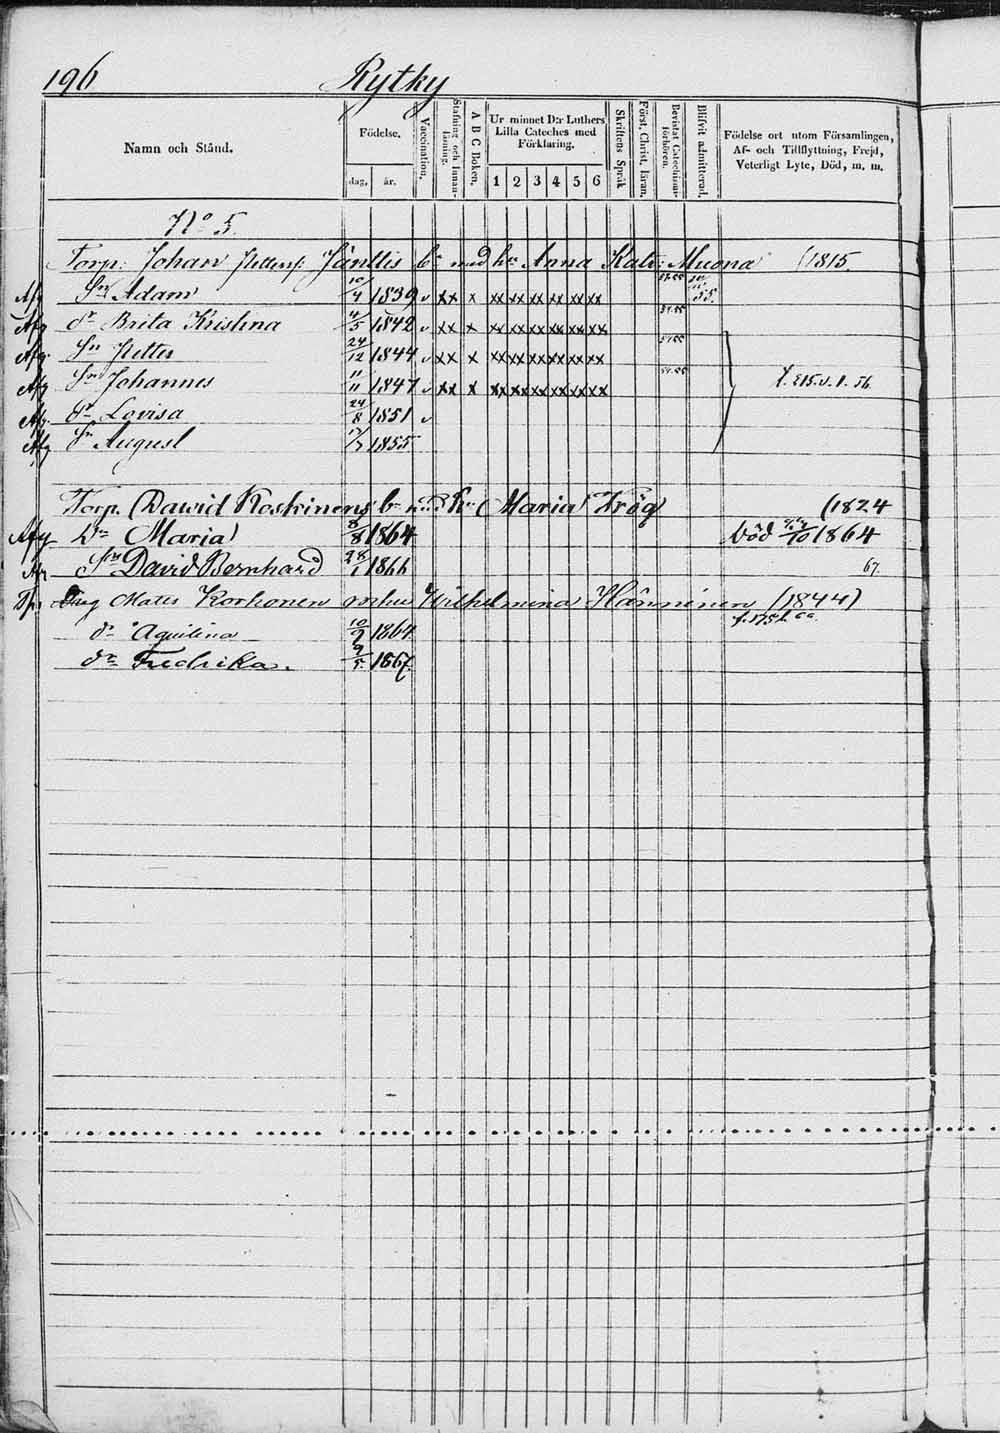 196 Rytky
Namn och Stånd.
Födelse.
dag. år.
Vaccination.
Stafning och Innan-läsning.
A B C Boken.
Ur minnet D:r Luthers Lilla Cateches med Förklaring.
1 2 3 4 5 6
Skriftens Språk
Först. Christ. läran.
Bevistat Catechismi-förhören.
Blifvit admitterad.
Födelse ort utom Församlingen, Af- och Tillflyttning, Frejd, Veterligt Lyte, Död, m. m.
No 5.
Torp. Johan Jänttis bn med hu Anna Muona (1815.
Afg Sn Adam 10/4 1839 v xx x xx xx xx xx xx xx 55.
Afg dr Brita Kristina 11/5 1842 v xx x xx xx xx xx xx xx
Afg. Sn Petter 24/12 1844 v xx x xx xx xx xx xx xx
Afg Sn Johannes 11/11 1847 v xx x xx xx xx xx xx xx
Afg. dr Lovisa 24/8 1851 v
Afg Sn August 1855.
Torp. Dawid Koskinens bn med hu Maria (1824
Afg Dr Maria 8/8 1864 Död /10 1864
Sn David Bernhard 28/1 1866 67.
Mats Korhonen Wilhelmina Hänninen (1844)
dr Aquilina 10/9 1864.
dr Fredrika. 9/5. 1867.